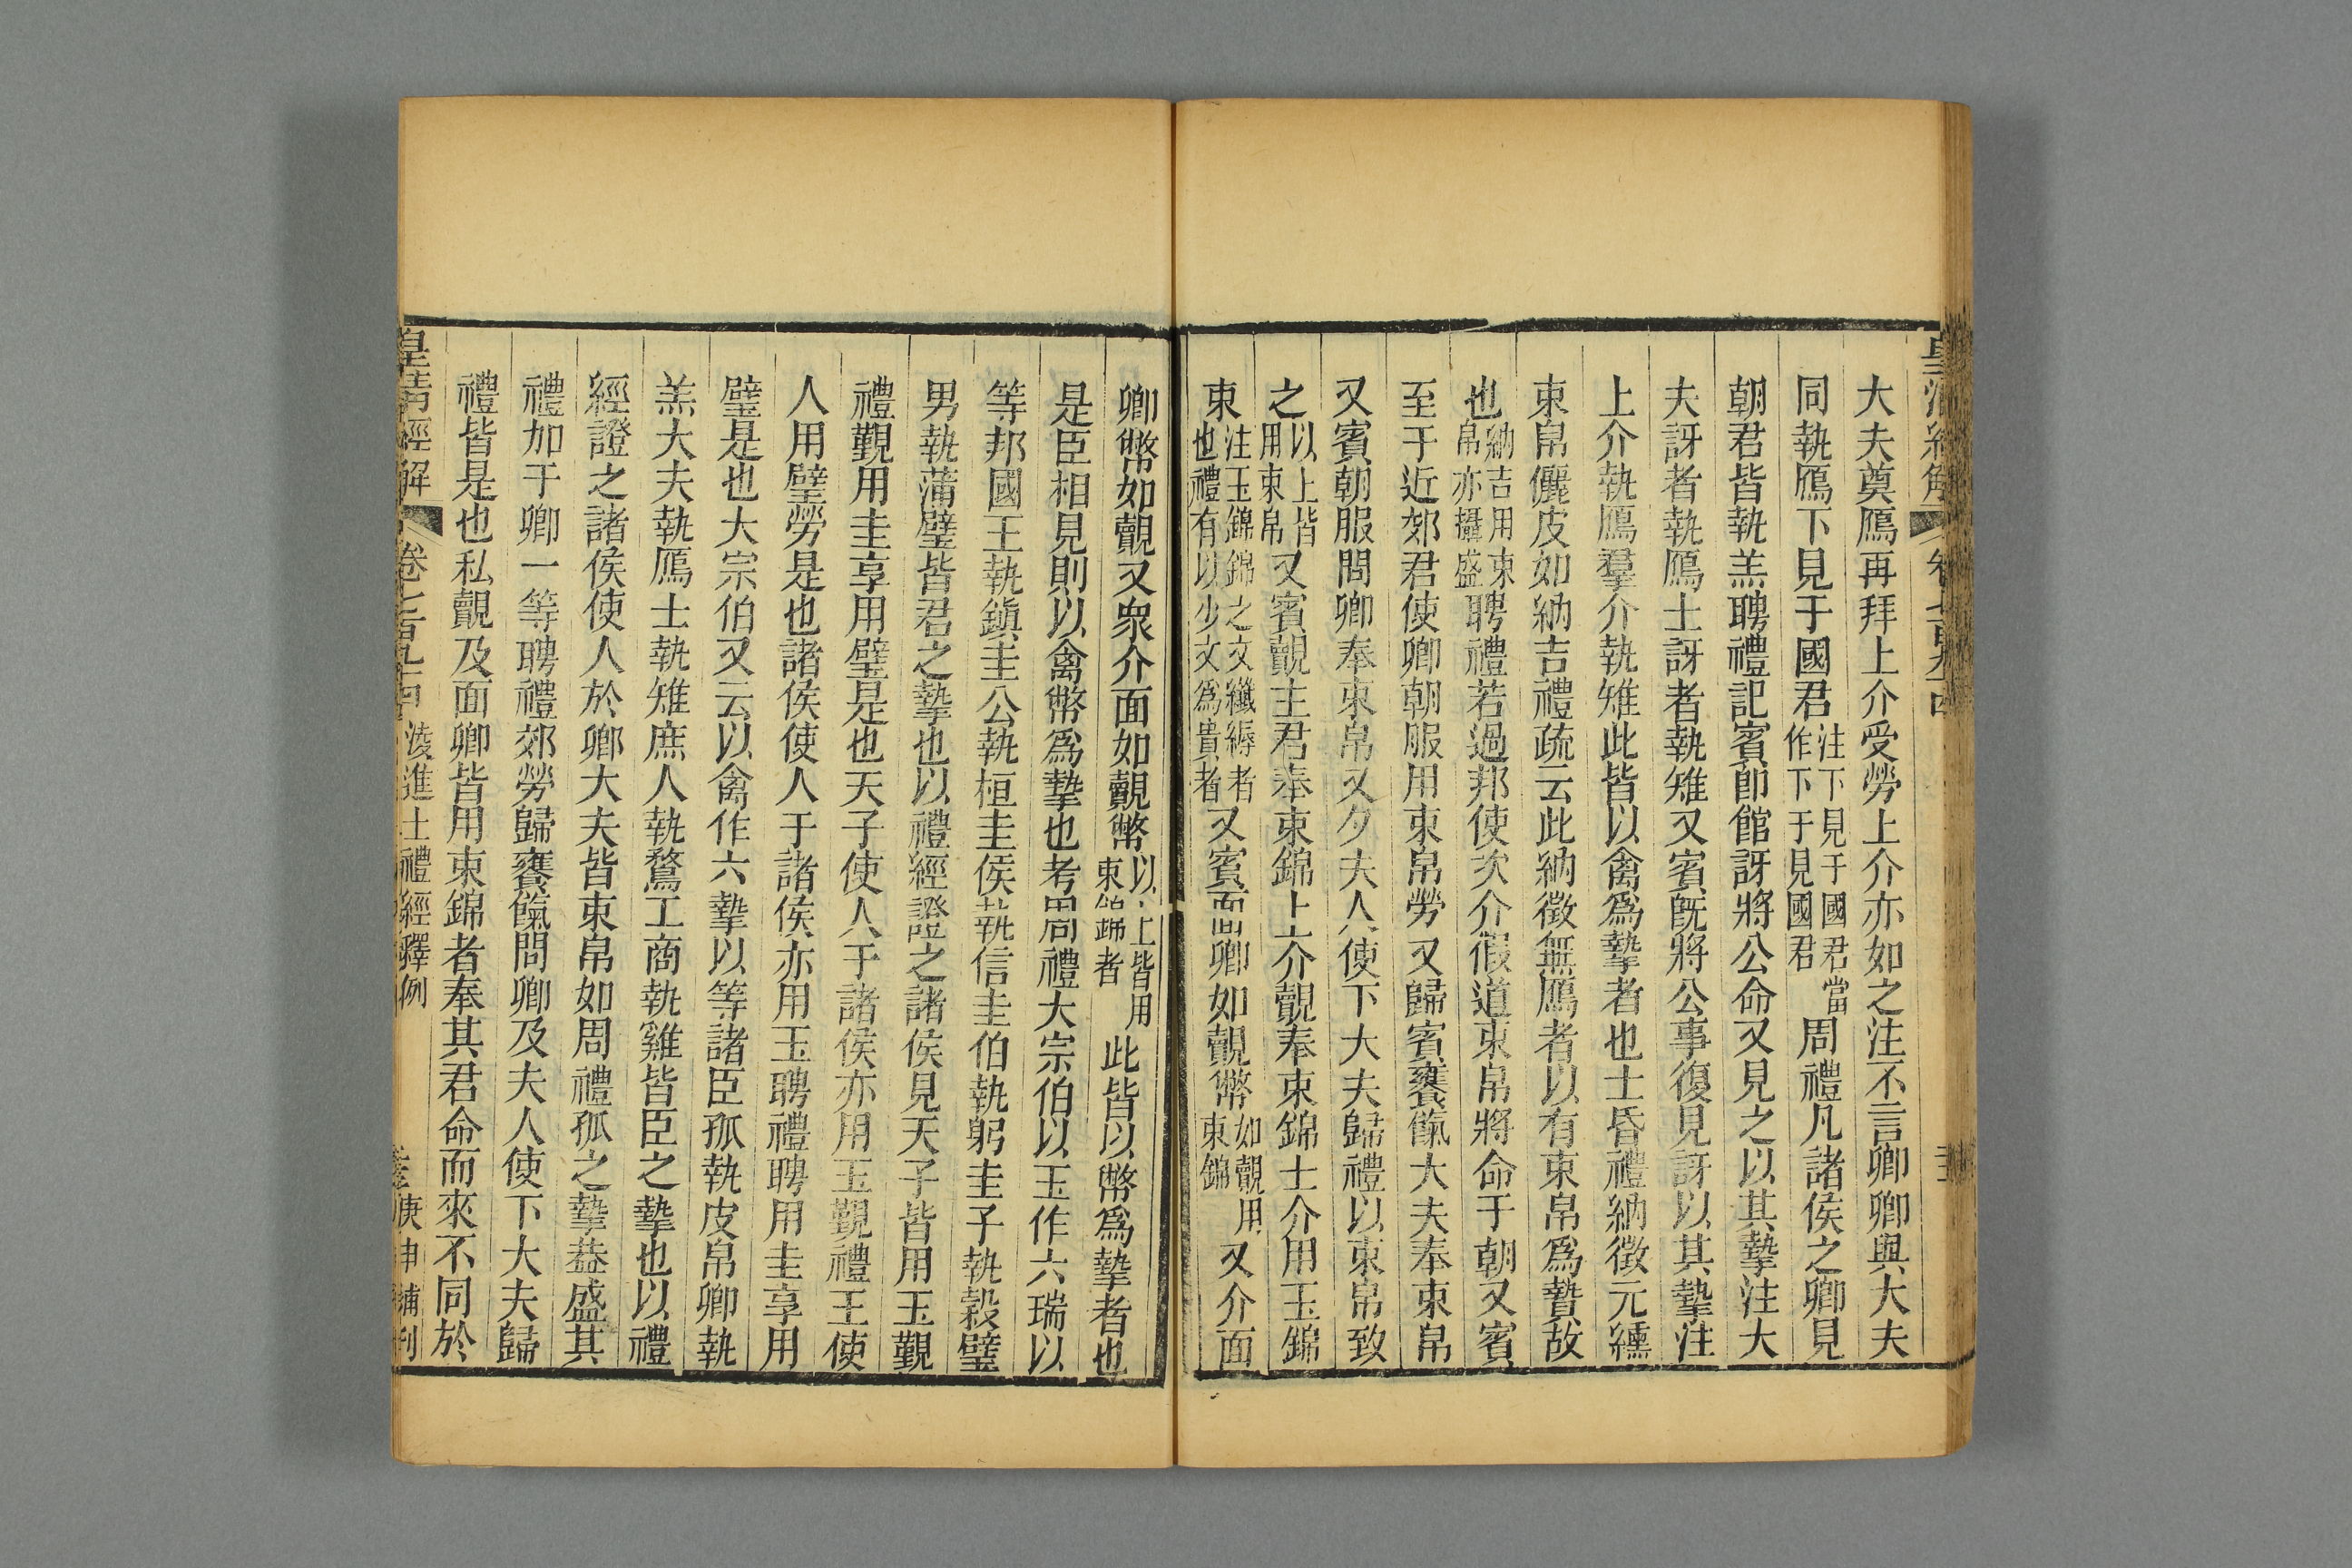 大夫奠鴈再拜上介受勞上介亦如之注不言卿卿與大夫
同執鴈下見于國君注下見于國君當作下于見國君周禮凡諸侯之卿見
朝君皆執羔聘禮記賓卽館訝將公命又見之以其摯注大
夫訝者執鴈士訝者執雉又賓旣將公事復見訝以其摯注
上介執鴈羣介執雉此皆以禽爲摯者也士昏禮納徵元纁
束帛儷皮如納吉禮疏云此納徵無鴈者以有束帛爲贄故
也納吉用束帛亦攝盛聘禮若過邦使次介假道束帛將命于朝又賓
至于近郊君使卿朝服用束帛勞又歸賓饔餼大夫奉束帛
又賓朝服問卿奉束帛又夕夫人使下大夫歸禮以束帛致
之以上皆用束帛又賓覿主君奉束錦上介覿奉束錦士介用玉錦
束注玉錦錦之文纖縟者也禮有以少文爲貴者又賓面卿如覿幣如覿用束錦又介面
卿幣如覿又衆介面如覿幣以上皆用束錦者此皆以幣爲摯者也
是臣相見則以禽幣爲摯也考周禮大宗伯以玉作六瑞以
等邦國王執鎭圭公執桓圭侯執信圭伯執躬圭子執穀璧
男執蒲璧皆君之摯也以禮經證之諸侯見天子皆用玉覲
禮覲用圭享用璧是也天子使人于諸侯亦用玉覲禮王使
人用璧勞是也諸侯使人于諸侯亦用玉聘禮聘用圭享用
璧是也大宗伯又云以禽作六摯以等諸臣孤執皮帛卿執
羔大夫執鴈士執雉庶人執鶩工商執雞皆臣之摯也以禮
經證之諸侯使人於卿大夫皆束帛如周禮孤之摯葢盛其
禮加于卿一等聘禮郊勞歸饔餼問卿及夫人使下大夫歸
禮皆是也私覿及面卿皆用束錦者奉其君命而來不同於
皇清經解 卷七百九十四 淩進士禮經釋例 庚申補刊